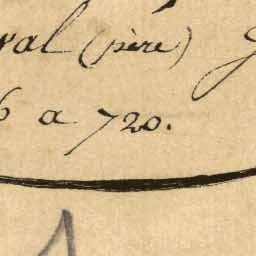 val (père) G
6 a 720.
1